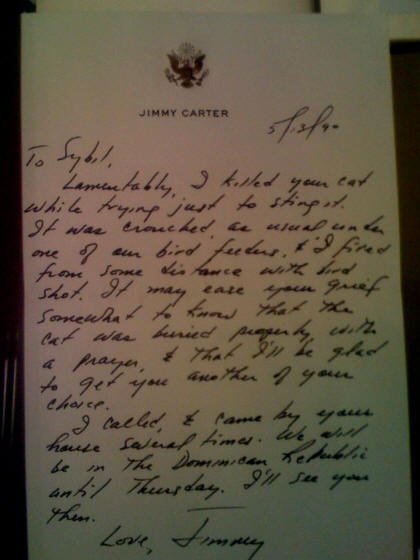 JIMMY CARTER
5/13/90
To Sybil,
Lamentably, I killed your cat
while trying just to sting it.
It was crouched, as usual, under
one of our bird feeders, & I fired
from some distance with bird
shot. It may ease your grief
somewhat to know that the
cat was buried properly with
a prayer, & that I'll be glad
to get you another of your
choice.
I called, & came by your
house several times. We will
be in the Dominican Republic
until Thursday. I'll see you
then.
Love, Jimmy